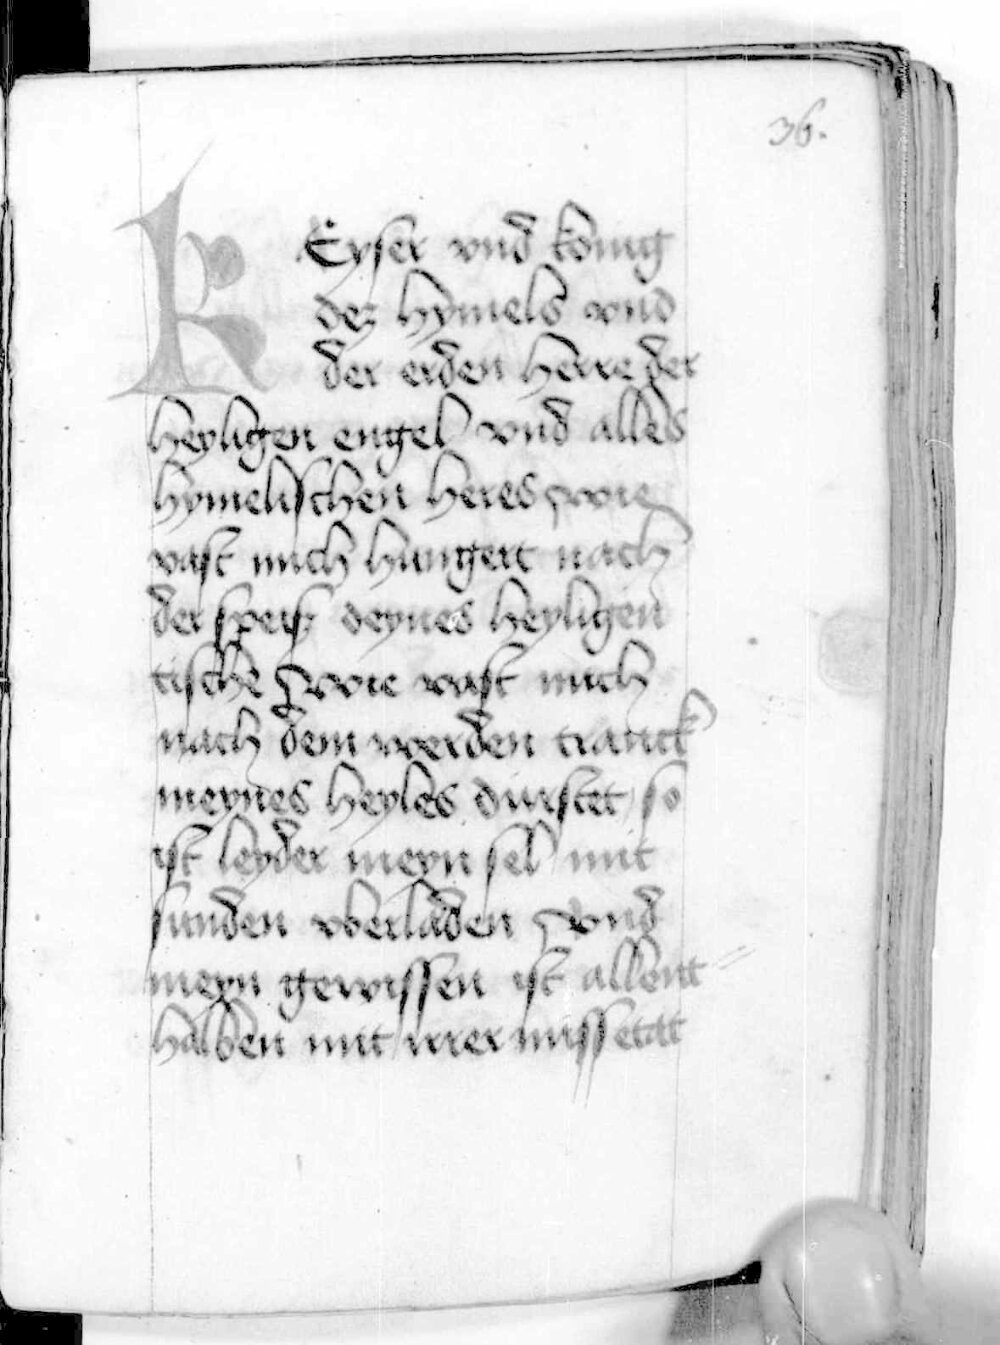 36.
KEyser vnd konig
dez hymels vnd
der erden herre der
heyligen engel vnd alles
hymelischen heres wie
vast mich hungert nach
der speisz deynes heyligen
tische wie vast mich
nach dem werden tranck
meynes heyles durstet so
ist leyder meyn sel mit
sunden vberladen vnd
meyn gewissen ist allent=
halben mit irrer missetat